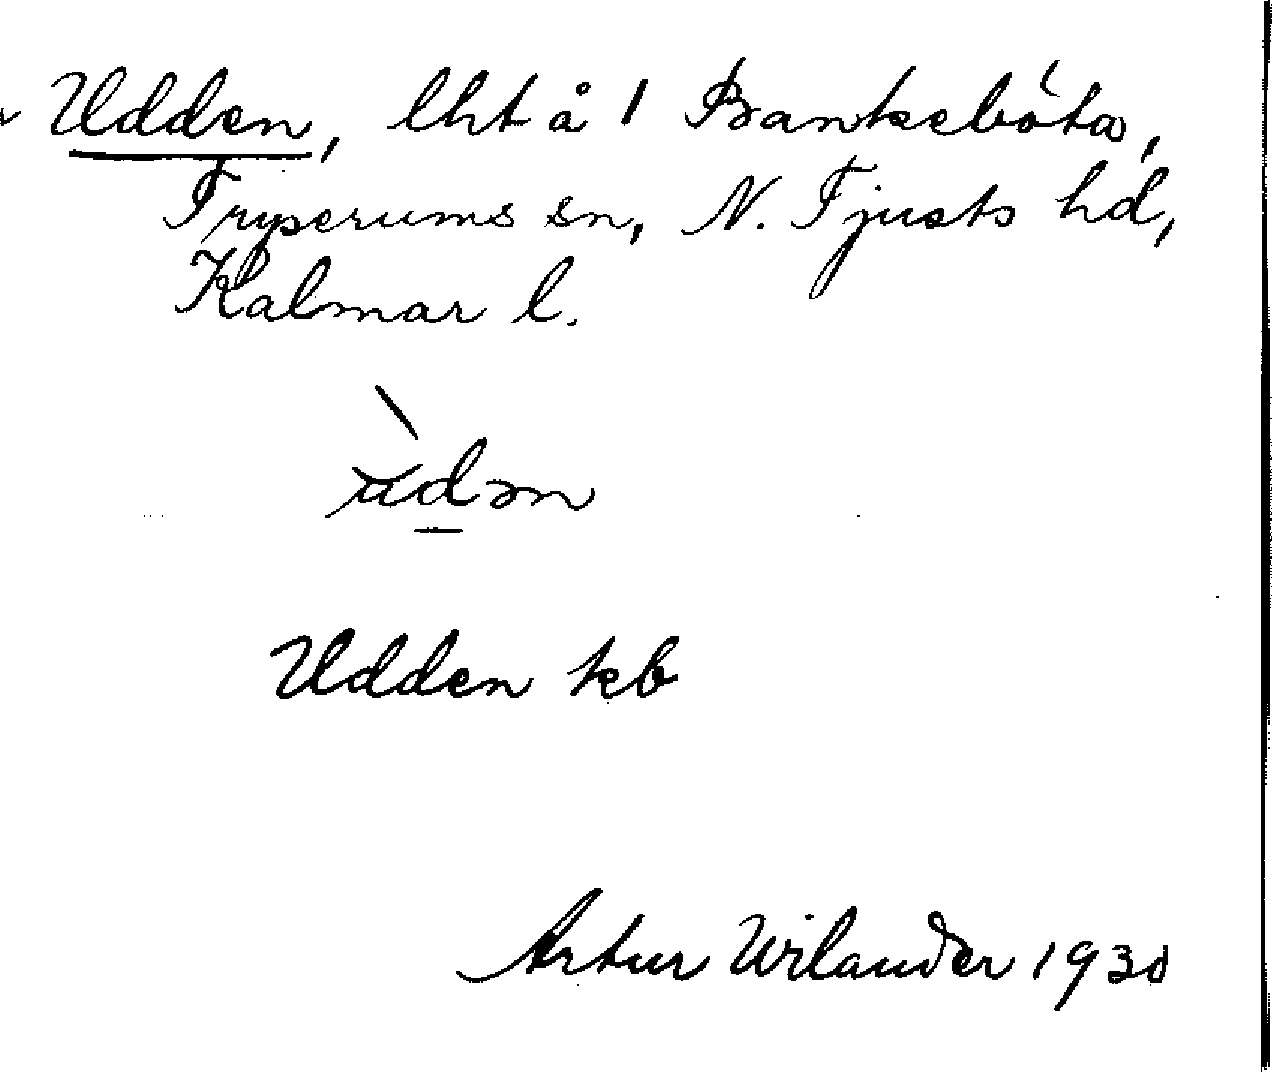 Udden, lht å 1 Bankebota,
Tryserums sn, N. Tjusts hd,
Kalmar l.
Udden kb
Artur Wilander 1930